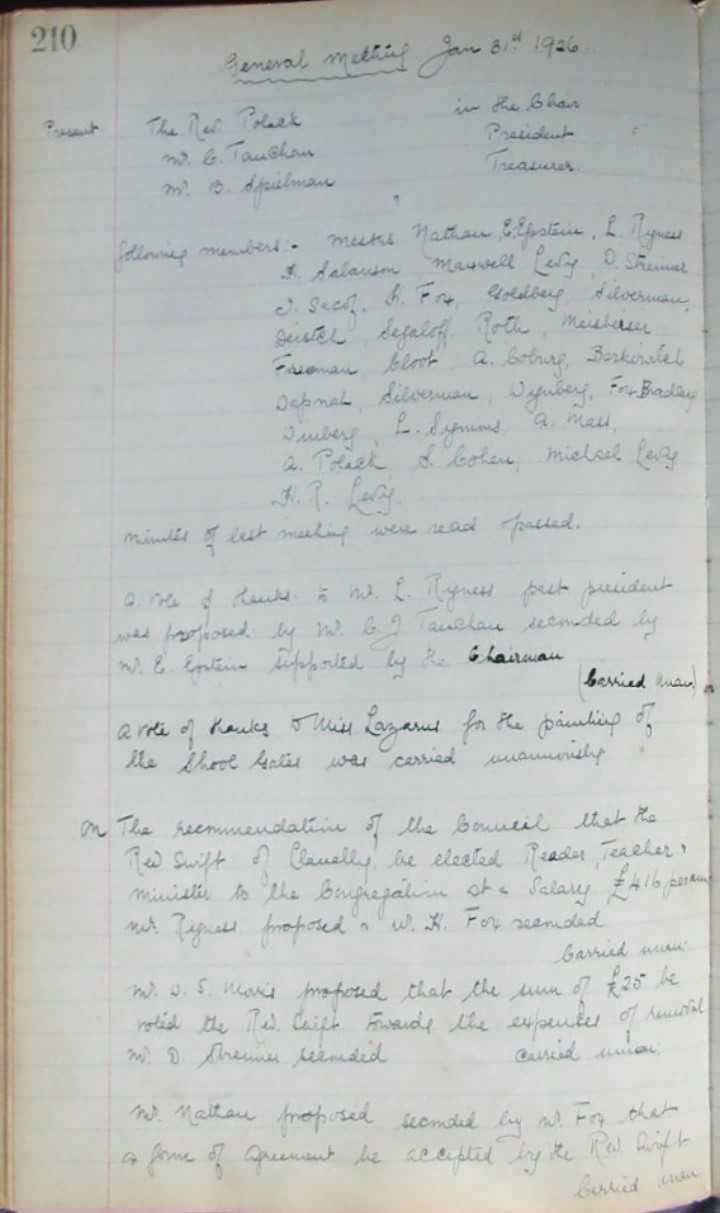 210
General Meeting Jan 31st 1926.
Present The Rev. Polack in the Chair
Mr. C. Tauchan President
Mr. B. Spielman Treasurer.
following members:- Messrs Nathan, E. Epstein, L. Ryness
H. Salanson Maxwell Levy, D. Streimer
J. H. Fox, Goldberg Silverman,
Segaloff, Roth,
Freeman Cloot, A. Coburg,
Silverman, Wynberg, Fox Bradley
L. Symms, A. Mass,
A. Polack S. Cohen, Michael Levy
H. R. Levy
Minutes of last meeting were read & passed.
A vote of thanks to Mr. L. Ryness past president
was proposed by Mr. C J Tauchan seconded by
Mr. E. Epstein supported by the Chairman
(Carried unan)
A vote of thanks to Miss Lazarus for the painting of
the Shool Gates was carried unanimously
On The recommendation of the Council that the
Rev Swift of Llanelly, be elected Reader, Teacher &
minister to the Congregation at a Salary £416 per ann
Mr. Ryness proposed & H. Fox seconded
Carried unan:
Mr. Morris proposed that the sum of £25 be
voted the Rev. Swift towards the expenses of removal
Mr. D. Streimer seconded carried unan:
Mr. Nathan proposed seconded by Mr. Fox that
a form of Agreement be accepted by the Rev Swift
Carried unan